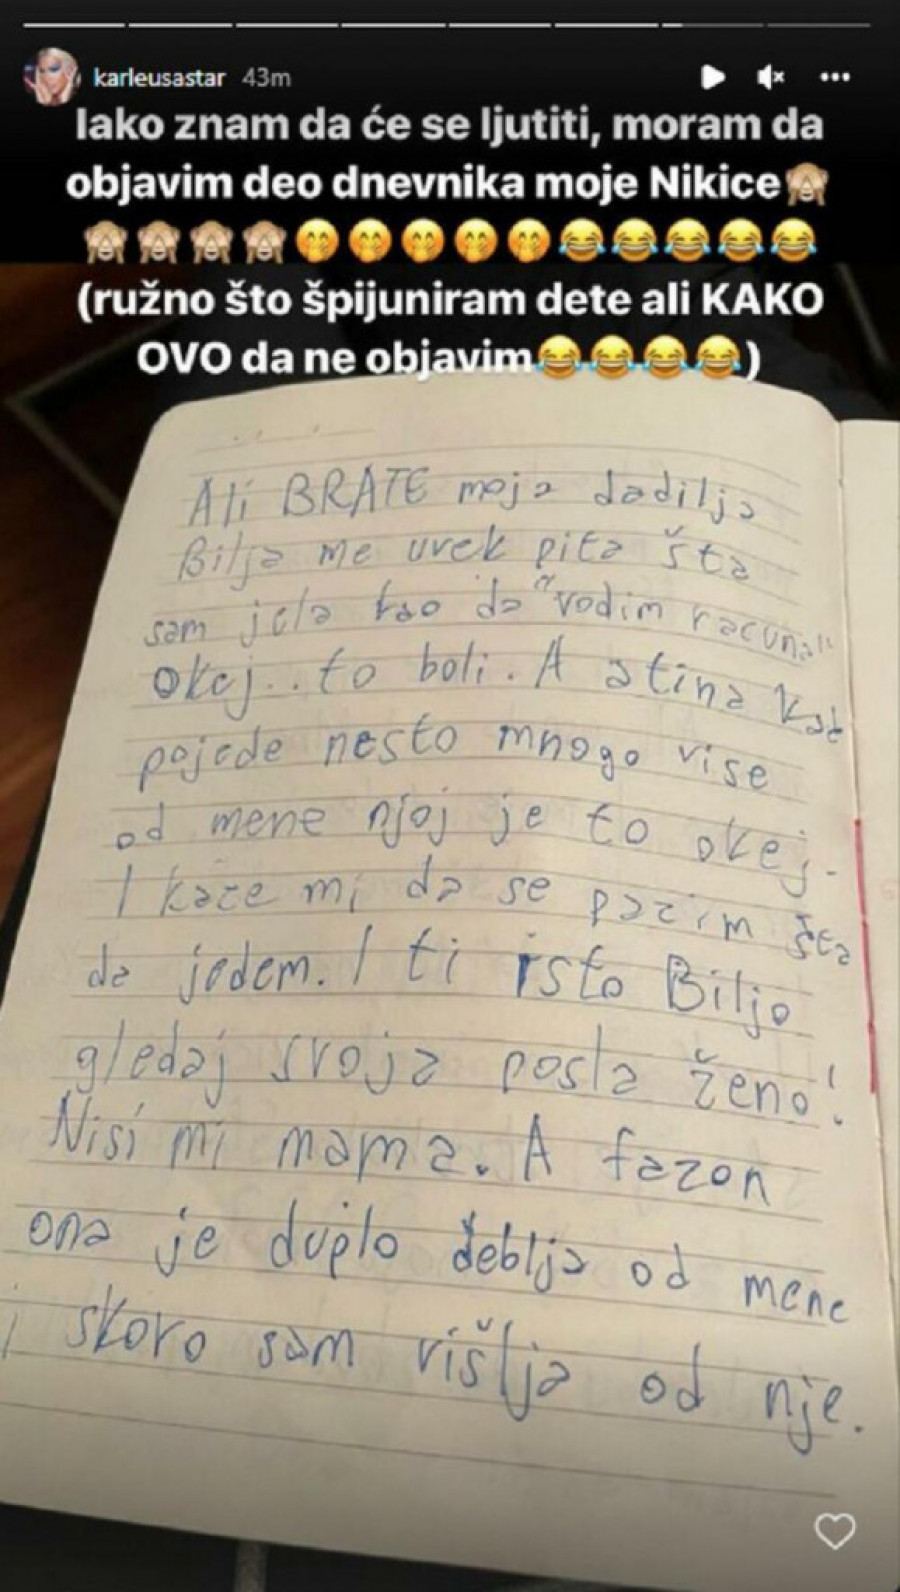 karleusastar 43m
Iako znam da će se ljutiti, moram da
objavim deo dnevnika moje Nikice🙈
🙈🙈🙈🙈🤭🤭🤭🤭🤭😂😂😂😂😂
(ružno što špijuniram dete ali KAKO
OVO da ne objavim😂😂😂😂)
Ali BRATE moja dadilja
Bilja me uvek pita šta
sam jela kao da "vodim računa"
Okej.. to boli. A atina kat
pojede nesto mnogo vise
od mene njoj je to okej.
I kaze mi da se pazim šta
da jedem. I ti isto Biljo
gledaj svoja posla ženo!
Nisi mi mama. A fazon
ona je duplo deblja od mene
i skoro sam višlja od nje.